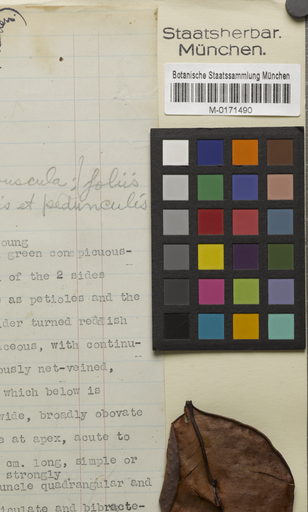 Staatsherbar.
München.
Botanische Staatssammlung München
M-0171490
foliis
is et pedunculis
oung
green conspicuous-
of the 2 sides
as petioles and the
der turned reddish
aceous, with continu-
ously net-veined,
which below is
wide, broadly obovate
e at apex, acute to
cm. long, simple or
strongly
uncle quadrangular and
iculate and bibracte-